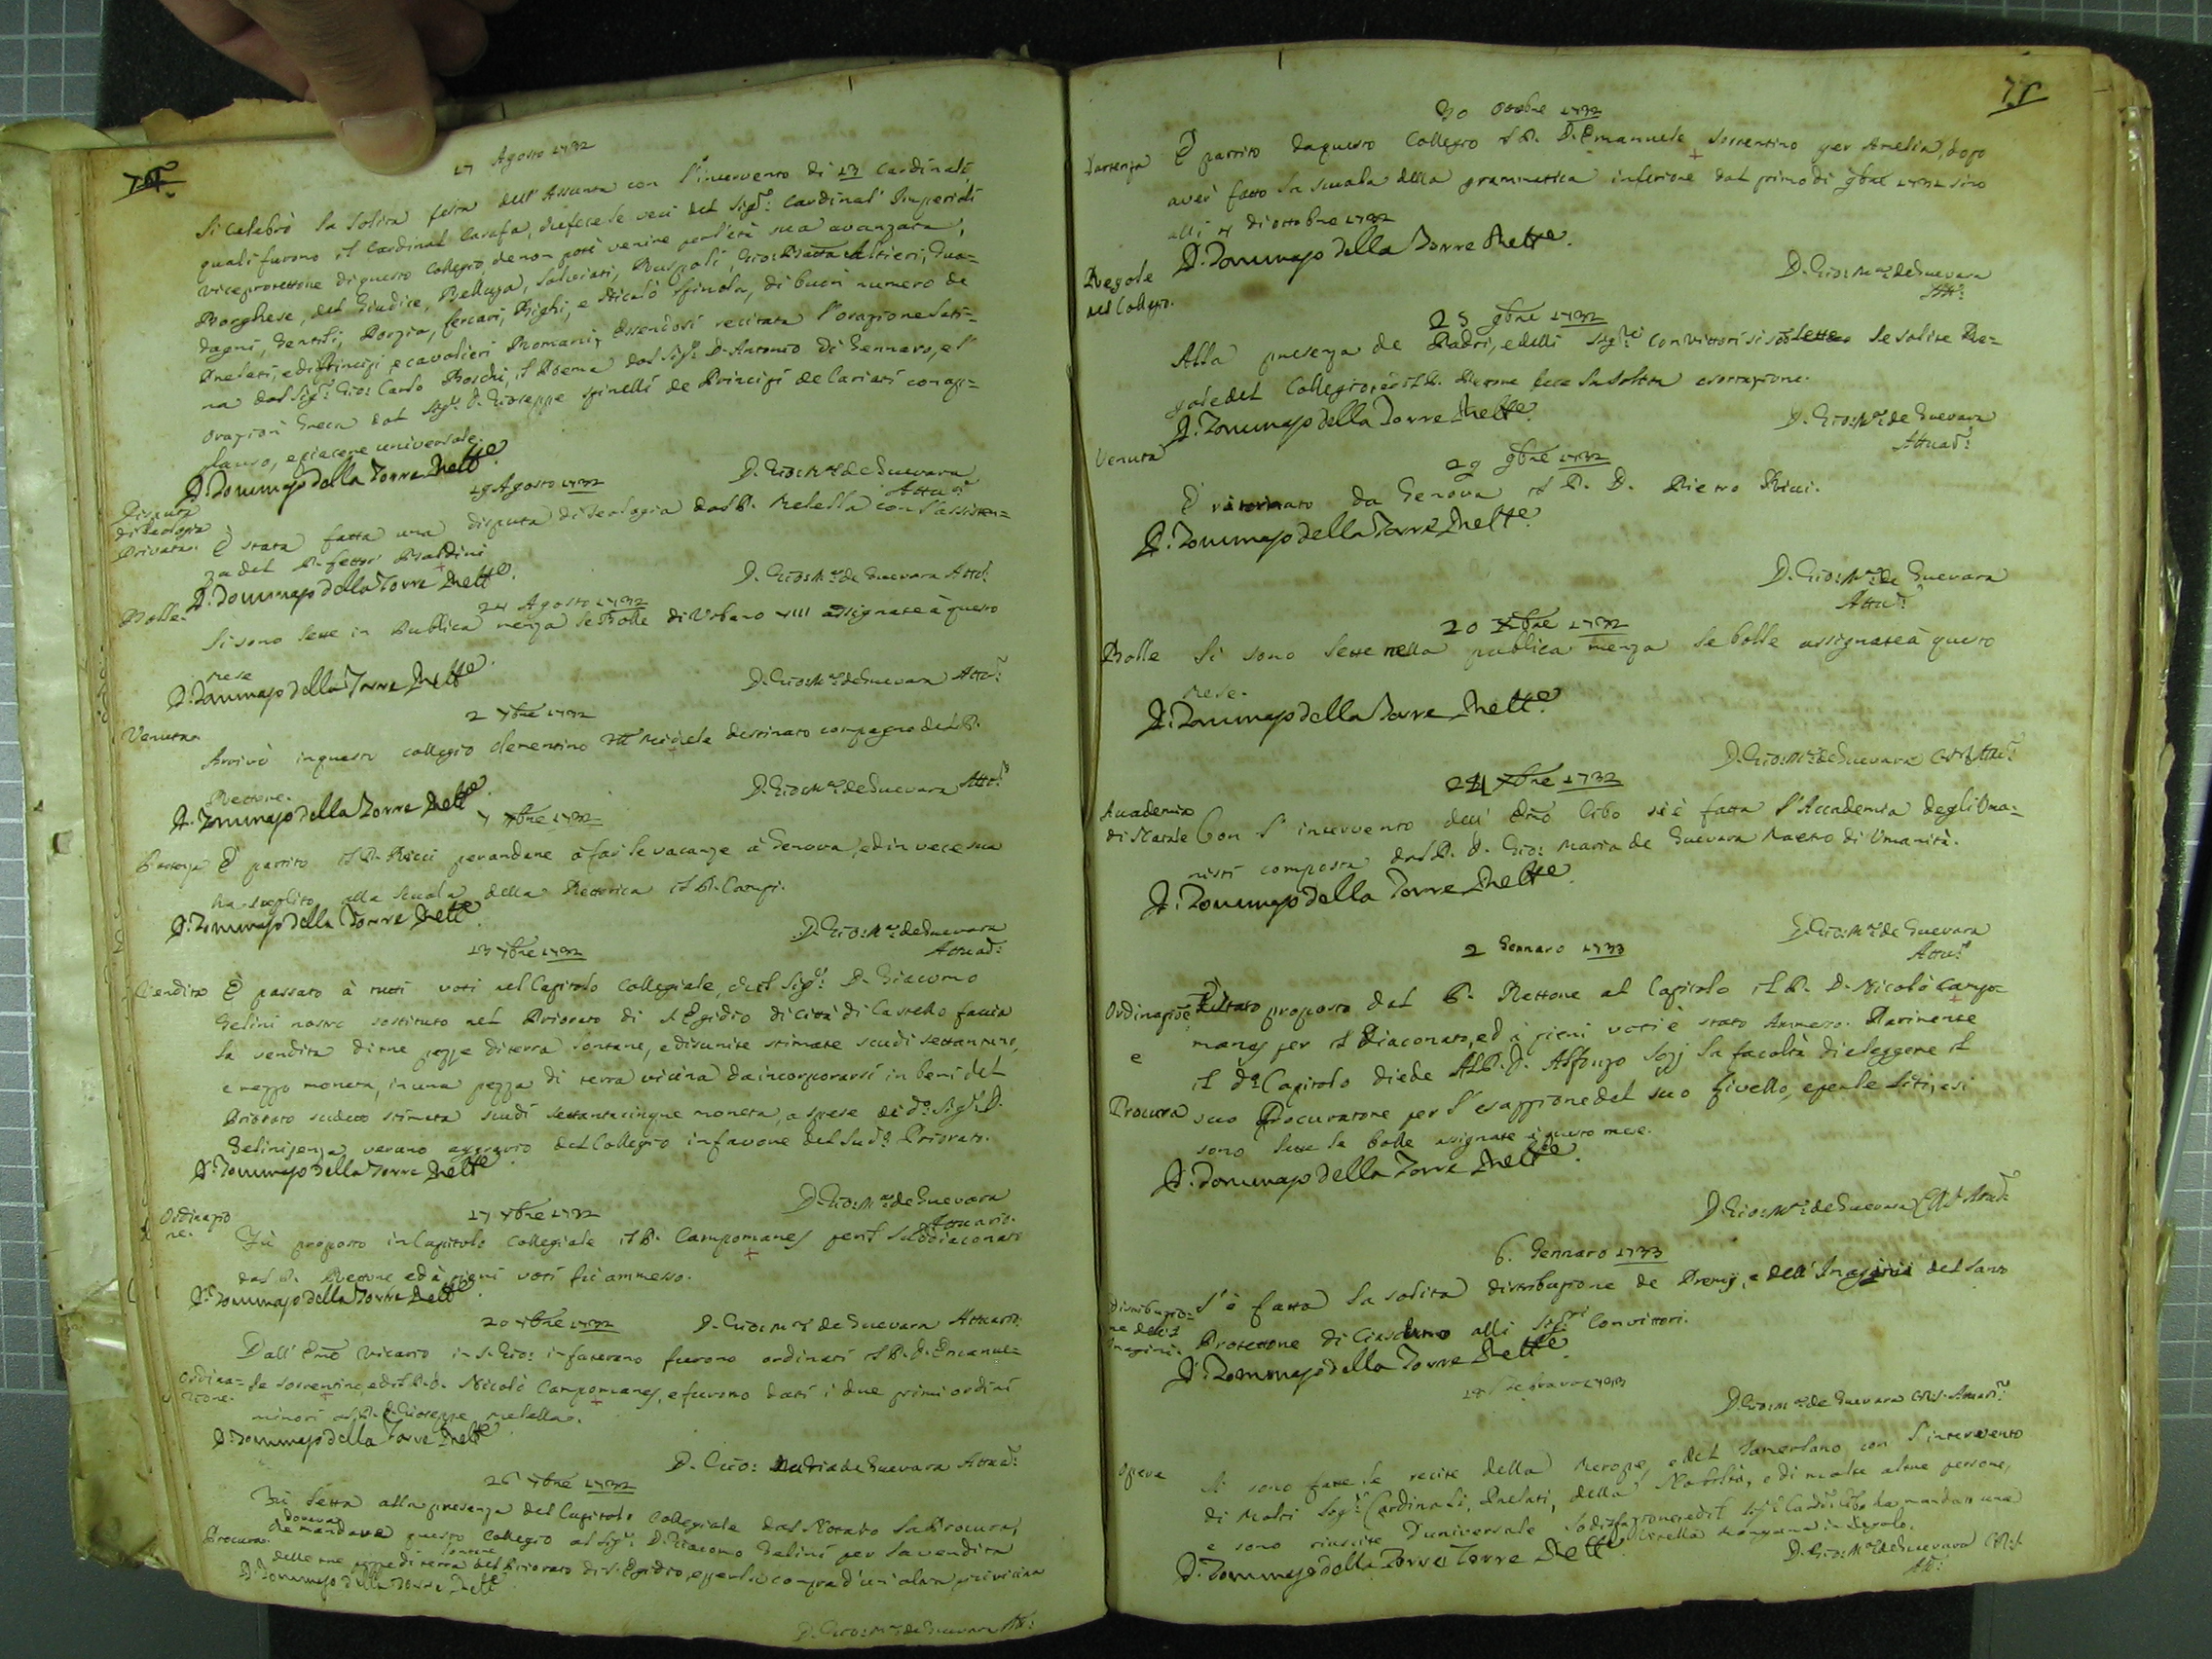 17 Agosto 1732
Si celebrò la solita festa dell'Assunta con l'intervento di 13 Cardinali,
quali furono il Cardinal Carafa, che fece le veci del Sig.r Cardinal Imperiali
viceprotettore di questo Collegio, che non potè venire per l'età sua avanzata,
Borghese, del Giudice, Belluga, Salviati, Ruspoli, Gio: Batta Altieri, Gua=
dagni, Gentili, Porzia, Ferrari, Bichi, e Nicolò Spinola, di buon numero de
Prelati, e di Principi, e cavalieri Romani; essendosi recitata l'orazione lati=
na dal Sig.r Gio: Carlo Boschi, il Poema dal Sig.r D. Antonio di Gennaro, e l'
orazion Greca dal Sig.r D. Gioseppe Spinelli de Principi de Cariati con ap=
plauso, e piacere universale.
D. Tommaso della Torre Rett.e
D. Gio: M.a de Guevara
Attu.
19 Agosto 1732
Disputa
di Teologia
Privata.
È stata fatta una disputa di teologia dal P. Melella con l'assisten=
za del P. Baldini
D. Tommaso della Torre Rett.e
D. Gio: M.a de Guevara Attu:
24 Agosto 1732
Bolle.
Si sono lette in Publica menza le Bolle di Urbano VIII assignate à questo
Mese
D. Tommaso della Torre Rett.e
D. Gio: M.a de Guevara Attu:
2 7bre 1732
Venuta.
Arrivò in questo collegio clementino Michele destinato compagno del P.
Rettore.
D. Tommaso della Torre Rett.e
D. Gio: M.a de Guevara Attu:
7bre 1732
Partenza
È partito il P. Ricci per andare à far le vacanze à Genova, ed in vece sua
ha supplito alla scuola della Rettorica il P. Campi.
D. Tommaso della Torre Rett.e
D. Gio: M.a de Guevara
Attuar:
13 7bre 1732
Vendita
È passato à tutti voti nel Capitolo Collegiale, che il Sig.r D. Giacomo
Gelini nostro sostituto nel Priorato di S. Egidio di Città di Castello faccia
la vendita di tre pezze di terra lontane, e disunite stimate scudi
e mezzo moneta, in una pezza di terra vicina da incorporarsi in beni del
Priorato sudetto stimata scudi settantacinque moneta, a spese de d.o Sig.r D.
Gelini senza verano aggravio del Collegio in favore del sud.o Priorato.
D. Tommaso della Torre Rett.e
D. Gio: M.a de Guevara
Attuario.
17 7bre 1732
Ordinazio
ne.
Fù proposto in Capitolo Collegiale il P. Campomanes per il Suddiaconato
dal P. Rettore ed à pieni voti fù ammesso.
D. Tommaso della Torre Rett.e
D. Gio: M.a de Guevara Attuario:
20 7bre 1732
Ordina=
zione.
Dall'Emo Vicario in S. Gio: in Laterano furono ordinati il P. D. Emanue=
le Sorrentino, ed il P. D. Nicolò Campomanes, e furono dati i due primi ordini
minori al P. D. Gioseppe Melella.
D. Tommaso della Torre Rett.e
D. Gio: Maria de Guevara Attuar:
26 7bre 1732
Procura.
Fù letta alla presenza del Capitolo Collegiale dal Notaro la Procura,
doveva
che mandare questo Collegio al Sig.r D. Giacomo Gelini per la vendita
lontane
delle tre pezze di terra del Priorato di S. Egidio, e per la compra d'un'altra più vicina
D. Tommaso della Torre Rett.e
D. Gio: M.a de Guevara Att:
75
30 Ottobre 1732
Partenza
È partito da questo Collegio il P. D. Emanuele Sorrentino per Amelia, dopo
aver fatto la scuola della grammatica inferiore dal primo di 9bre sino
alli di ottobre 1732
D. Tommaso della Torre Rett.e
D. Gio: M.a de Guevara
Att:
25 9bre 1732
Regole
del Collegio.
Alla presenza de Padri, e delli Sig.ri Convittori si son lette le solite Re=
gole del Collegio, ed il P. Rettore fece la solita esortazione.
D. Tommaso della Torre Rett.e
D. Gio: M.a de Guevara
Attuar:
29 9bre 1732
Venuta
È ritornato da Genova il P. D. Pietro Ricci.
D. Tommaso della Torre Rett.e
D. Gio: M.a de Guevara
Attu:
20 Xbre 1732
Bolle
Si sono lette nella publica menza le bolle assignate à questo
Mese.
D. Tommaso della Torre Rett.e
D. Gio: M.a de Guevara C.R.S. Attu:
24 Xbre 1732
Accademia
di Natale
Con l'intervento dell'Emo Cibo si è fatta l'Accademia degli Uma=
nisti composta dal P. D. Gio: Maria de Guevara Maestro di Umanità.
D. Tommaso della Torre Rett.e
D. Gio: M.a de Guevara
Attu:
2 Gennaro 1733
Ordinazio.e
e
Procura
È stato proposto dal P. Rettore al Capitolo il P. D. Nicolò Campo=
manes per il Diaconato, ed à pieni voti è stato Ammesso. Parimente
il d.o Capitolo diede Al P. D. Alfonzo Sozj la facoltà di eleggere il
suo Procuratore per l'esazzione del suo livello, e per le liti, e si
sono lette le bolle assignate à questo mese.
D. Tommaso della Torre Rett.e
D. Gio: M.a de Guevara C.R.S. Attu:
6. Gennaro 1733
Distribuzio=
ne dell'
Imagini.
S'è fatta la solita distribuzione de Premj, e dell'Imagini del Santo
Protettore di Ciascuno alli Sig.ri Convittori.
D. Tommaso della Torre Rett.e
D. Gio: M.a de Guevara C.R.S. Attuari:
18 Febraro 1733
Opera
Si sono fatte le recite della Merope, e del Tamerlano con l'intervento
di Molti Sig.ri Cardinali, Prelati, della Nobiltà, e di molte altre persone,
e sono riuscite d'universale sodisfazione, ed il Sig.r Card. Cibo ha mandato una
D. Tommaso della Torre Rett.e
D. Gio: M.a de Guevara C.R.S.
Att: